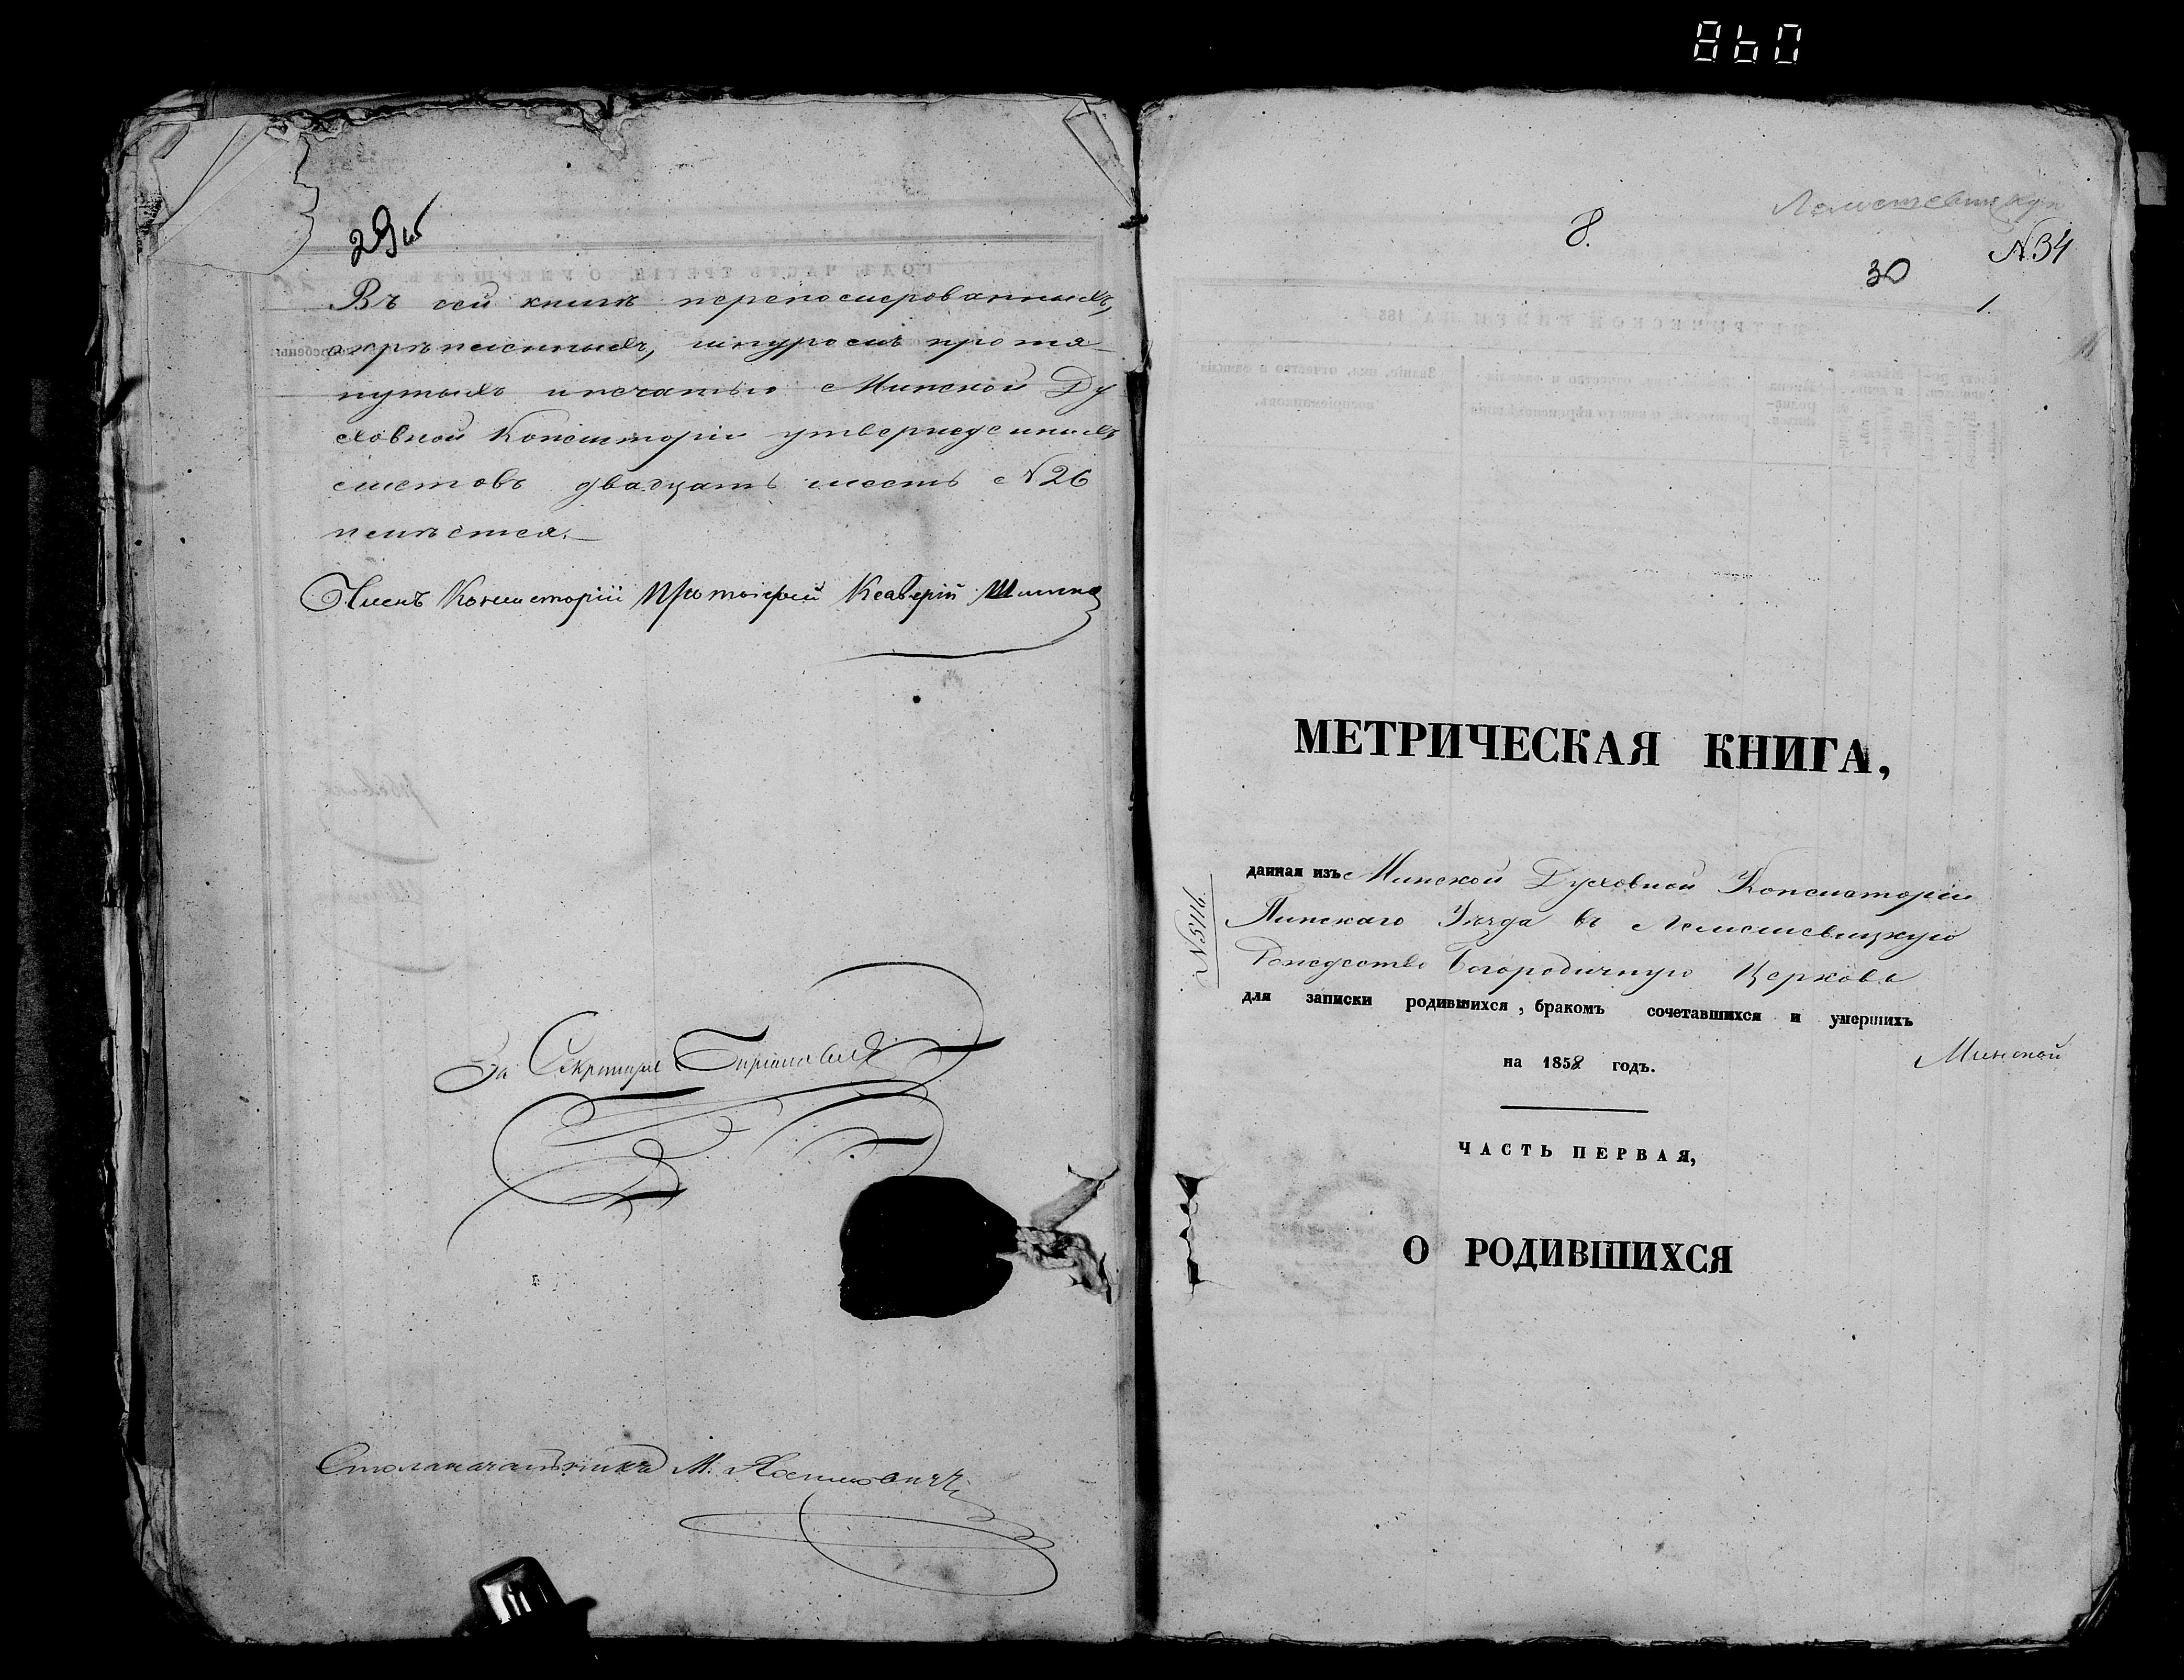 29об
Въ сей книгѣ перепомерованныхъ,
скрѣпленныхъ, шнуромъ протя-
нутыхъ и печатью Минской Ду
ховной Консисторіи утвержденныхъ
листовъ двадцать шесть №26
имѣется.
Членъ Консисторіи Протоіерей Ксаверій
За Секретаря
Столоначальникъ М.
8.
№34
30
1.
МЕТРИЧЕСКАЯ КНИГА,
данная изъ Минской Духовной Консисторіи
Пинскаго Уѣзда въ Лемешевицкую
Рождество Богородичную Церковь
№5716.
для записки родившихся, бракомъ сочетавшихся и умершихъ
на 1858 годъ.
Минской
ЧАСТЬ ПЕРВАЯ,
О РОДИВШИХСЯ